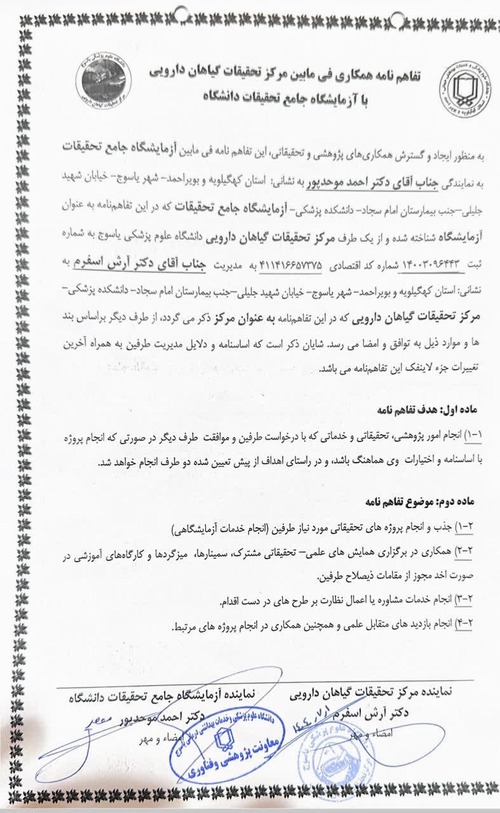 تفاهم نامه همکاری فی مابین مرکز تحقیقات گیاهان دارویی
با آزمایشگاه جامع تحقیقات دانشگاه
به منظور ایجاد و گسترش همکاری‌های پژوهشی و تحقیقاتی، این تفاهم نامه فی مابین آزمایشگاه جامع تحقیقات
به نمایندگی جناب آقای دکتر احمد موحدپور به نشانی: استان کهگیلویه و بویراحمد- شهر یاسوج- خیابان شهید
جلیلی–جنب بیمارستان امام سجاد- دانشکده پزشکی- آزمایشگاه جامع تحقیقات که در این تفاهم‌نامه به عنوان
آزمایشگاه شناخته شده و از یک طرف مرکز تحقیقات گیاهان دارویی دانشگاه علوم پزشکی یاسوج به شماره
ثبت ۱۴۰۰۳۰۹۶۴۴۳ شماره کد اقتصادی ۴۱۱۴۱۶۶۵۷۳۷۵ به مدیریت جناب آقای دکتر آرش اسفرم به
نشانی: استان کهگیلویه و بویراحمد- شهر یاسوج- خیابان شهید جلیلی–جنب بیمارستان امام سجاد- دانشکده پزشکی-
مرکز تحقیقات گیاهان دارویی که در این تفاهم‌نامه به عنوان مرکز ذکر می گردد، از طرف دیگر براساس بند
ها و موارد ذیل به توافق و امضا می رسد. شایان ذکر است که اساسنامه و دلایل مدیریت طرفین به همراه آخرین
تغییرات جزء لاینفک این تفاهم‌نامه می باشد.
ماده اول: هدف تفاهم نامه
۱-۱) انجام امور پژوهشی، تحقیقاتی و خدماتی که با درخواست طرفین و موافقت طرف دیگر در صورتی که انجام پروژه
با اساسنامه و اختیارات وی هماهنگ باشد، و در راستای اهداف از پیش تعیین شده دو طرف انجام خواهد شد.
ماده دوم: موضوع تفاهم نامه
۱-۲) جذب و انجام پروژه های تحقیقاتی مورد نیاز طرفین (انجام خدمات آزمایشگاهی)
۲-۲) همکاری در برگزاری همایش های علمی- تحقیقاتی مشترک، سمینارها، میزگردها و کارگاه‌های آموزشی در
صورت اخذ مجوز از مقامات ذیصلاح طرفین.
۳-۲) انجام خدمات مشاوره یا اعمال نظارت بر طرح های در دست اقدام.
۴-۲) انجام بازدید های متقابل علمی و همچنین همکاری در انجام پروژه های مرتبط.
نماینده مرکز تحقیقات گیاهان دارویی
دکتر آرش اسفرم
امضاء و مهر
نماینده آزمایشگاه جامع تحقیقات دانشگاه
دکتر احمد موحدپور
امضاء و مهر
معاونت پژوهشی و فناوری